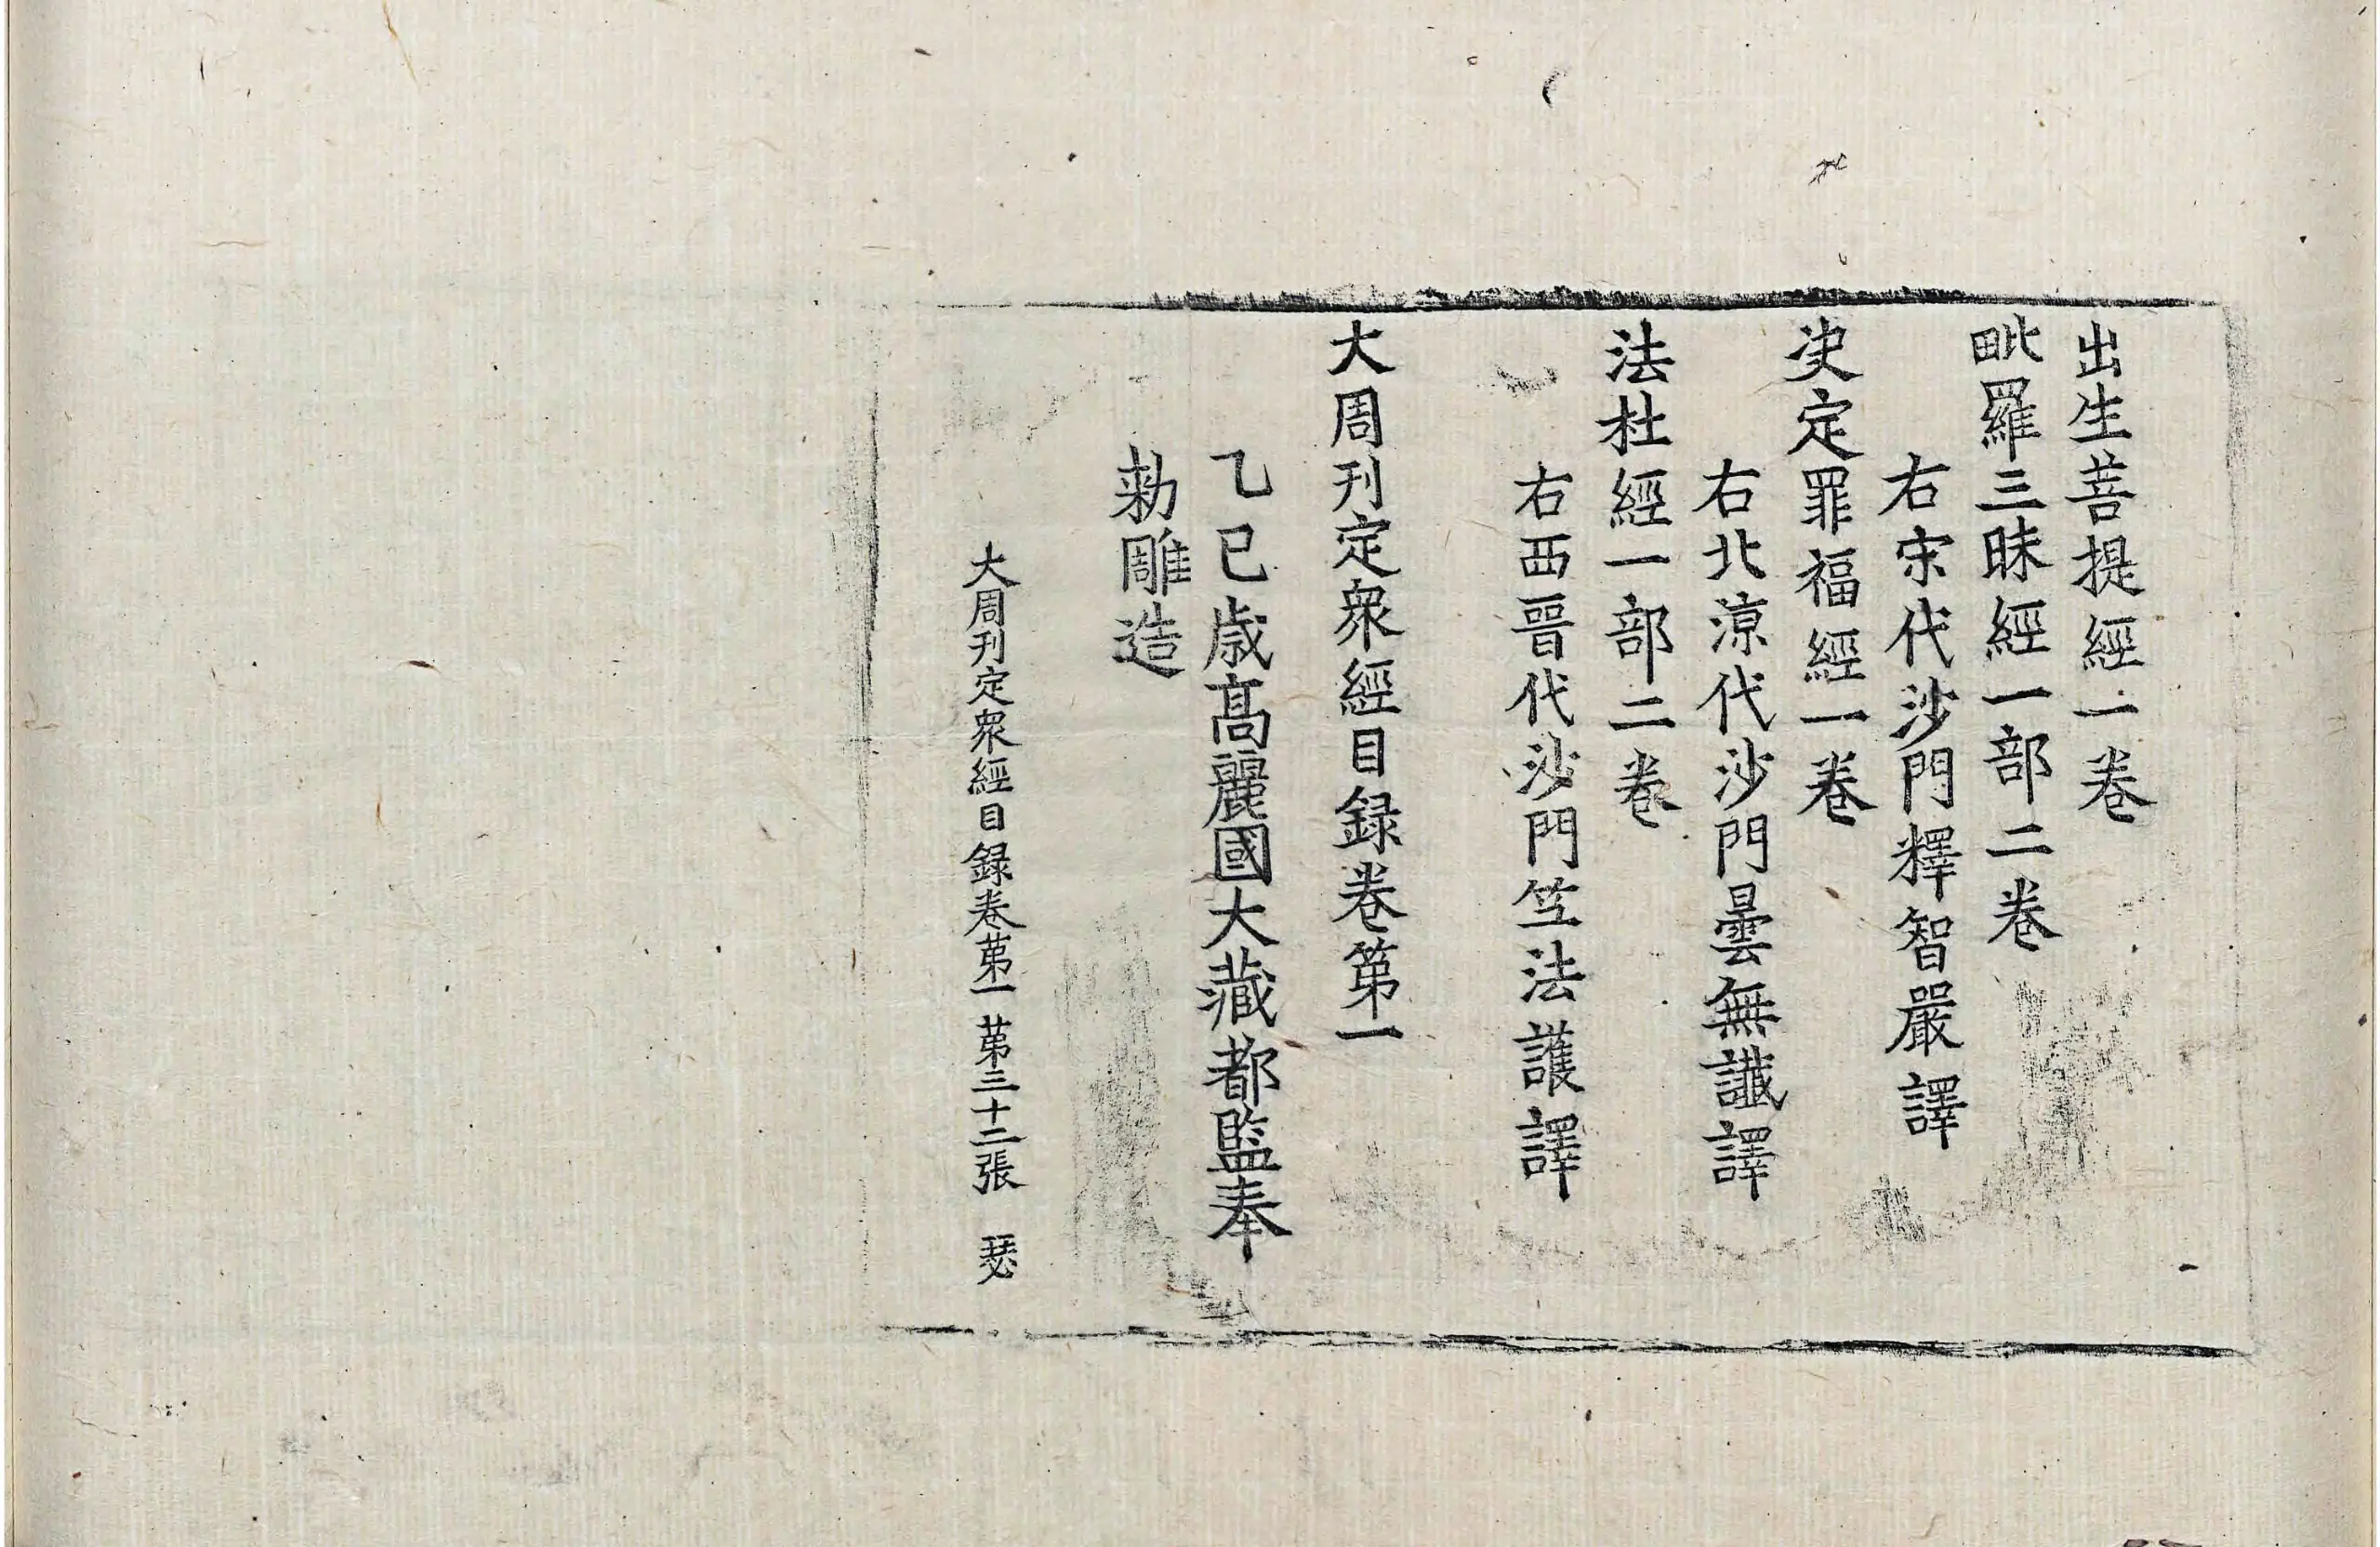 出生菩提經一卷
毗羅三昧經一部二卷
右宋代沙門釋智嚴譯
決定罪福經一卷
右北涼代沙門曇無讖譯
法杜經一部二卷
右西晉代沙門竺法護譯
大周刊定衆經目録卷第一
乙巳歳髙麗國大藏都監奉
勑雕造
大周刊定衆經目録卷第一 第三十二張 瑟